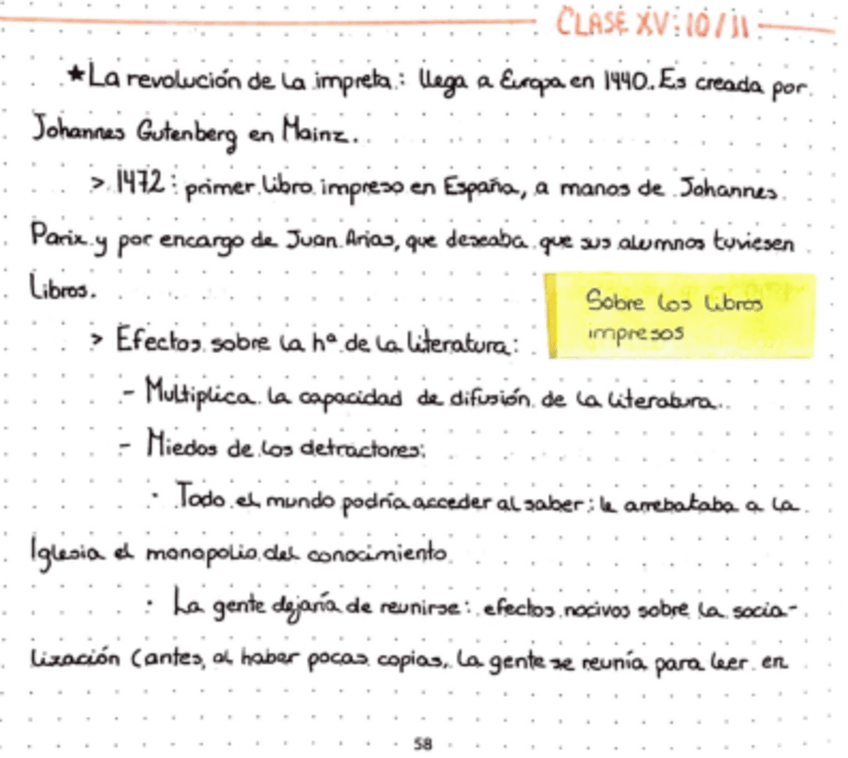 CLASE XV: 10/11
★ La revolución de la impreta: llega a Europa en 1440. Es creada por
Johannes Gutenberg en Mainz.
> 1472: primer libro impreso en España, a manos de Johannes
Parix y por encargo de Juan Arias, que deseaba que sus alumnos tuviesen
libros.
Sobre los libros
impresos
> Efectos sobre la hª de la literatura:
- Multiplica la capacidad de difusión de la literatura.
- Miedos de los detractores:
· Todo el mundo podría acceder al saber; le arrebataba a la
Iglesia el monopolio del conocimiento
· La gente dejaría de reunirse: efectos nocivos sobre la socia-
lización (antes, al haber pocas copias, la gente se reunía para leer en
58